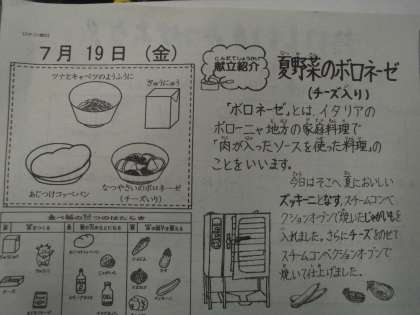 7月19日（金）
ツナとキャベツのようふうに
ぎゅうにゅう
あじつけコッペパン
なつやさいのボロネーゼ
（チーズいり）
献立紹介
夏野菜のボロネーゼ
（チーズ入り）
「ボロネーゼ」とは、イタリアの
ボローニャ地方の家庭料理で
「肉が入ったソースを使った料理」の
ことをいいます。
今日はそこへ夏においしい
ズッキーニとなす、スチームコンベ
クションオーブンで焼いたじゃがいもを
入れました。さらにチーズをのせて
スチームコンベクションオーブンで
焼いて仕上げました。